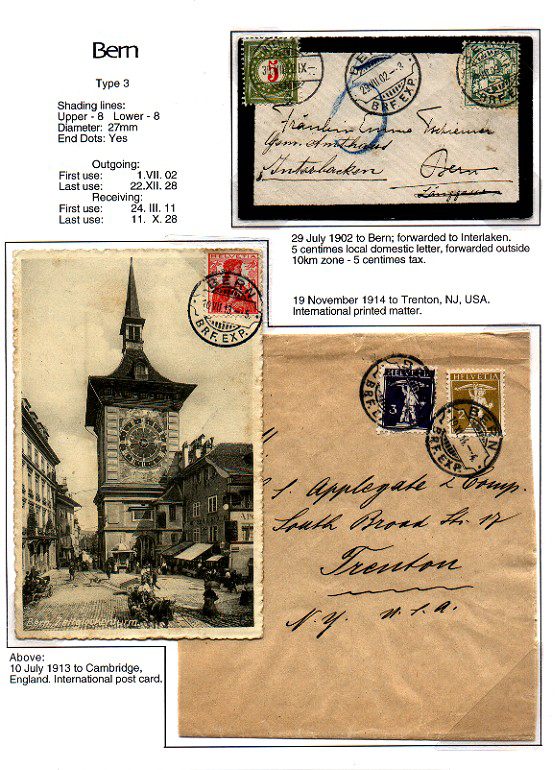 Bern
Type 3
Shading lines:
Upper - 8 Lower - 8
Diameter: 27mm
End Dots: Yes
Outgoing:
First use: 1.VII. 02
Last use: 22.XII. 28
Receiving:
First use: 24. III. 11
Last use: 11. X. 28
5
29 VII 02 - 8
BRF. EXP.
Fräulein Emma Tschiemer
Interlacken
Bern
Länggasse
29 July 1902 to Bern; forwarded to Interlaken.
5 centimes local domestic letter, forwarded outside
10km zone - 5 centimes tax.
19 November 1914 to Trenton, NJ, USA.
International printed matter.
HELVETIA
BERN
BRF. EXP.
Bern. Zeitglockenturm
HELVETIA
3
BERN
BRF. EXP.
Applegate & Comp.
South Broad Str. 17
Trenton
N.Y. U.S.A.
Above:
10 July 1913 to Cambridge,
England. International post card.